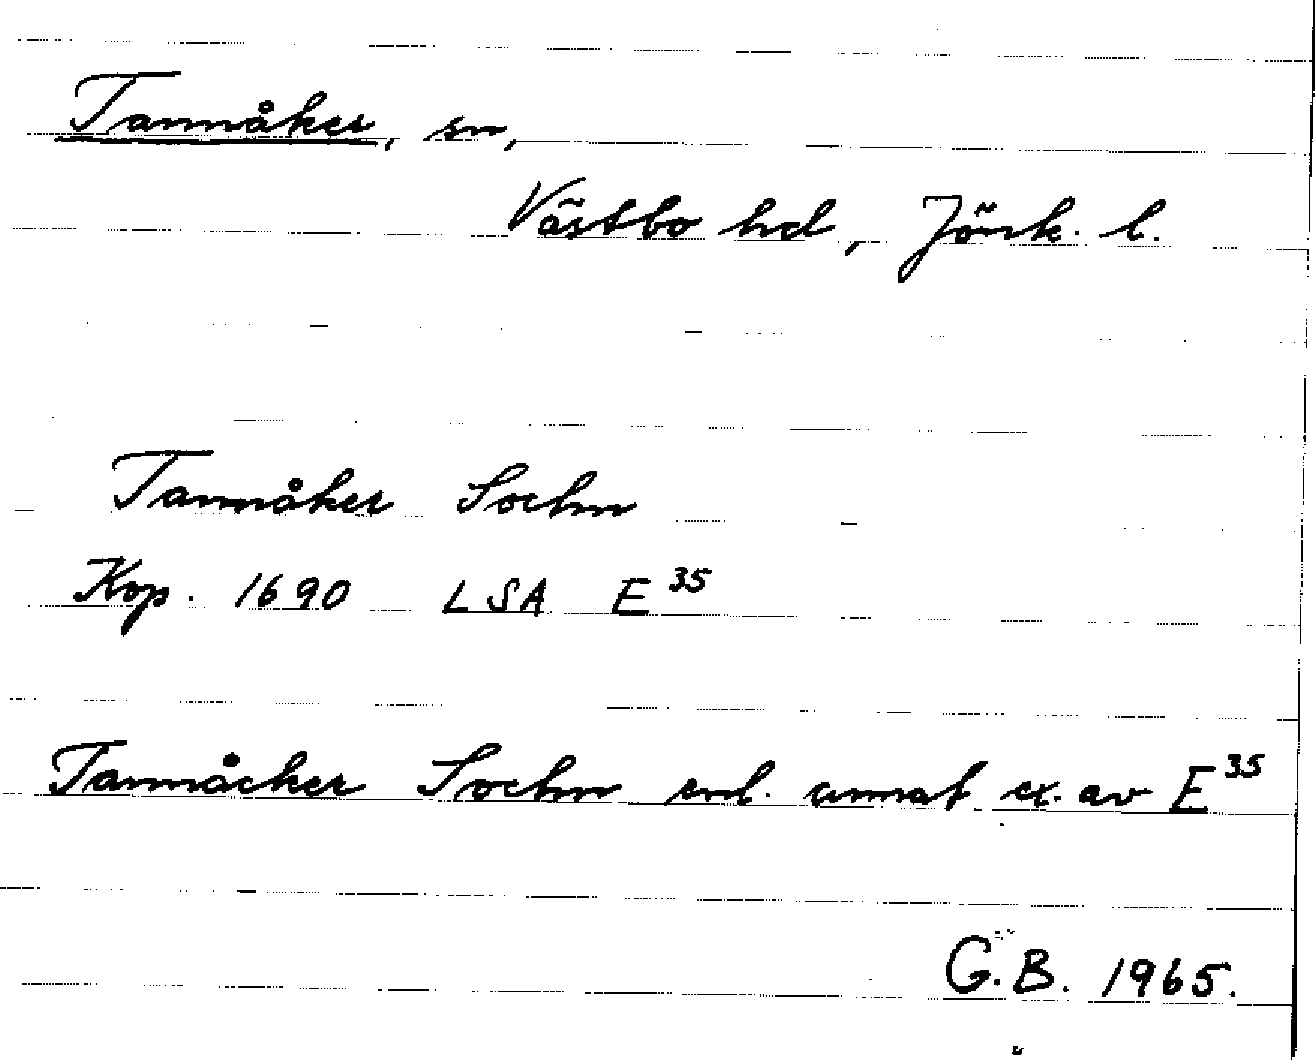 Tannåker, sn,
Västbo hd, Jönk. l.
Tannåker Sochn
Kop. 1690 LSA E 35
Tannåcker Sochn enl. annat ex. av E 35
G.B. 1965.